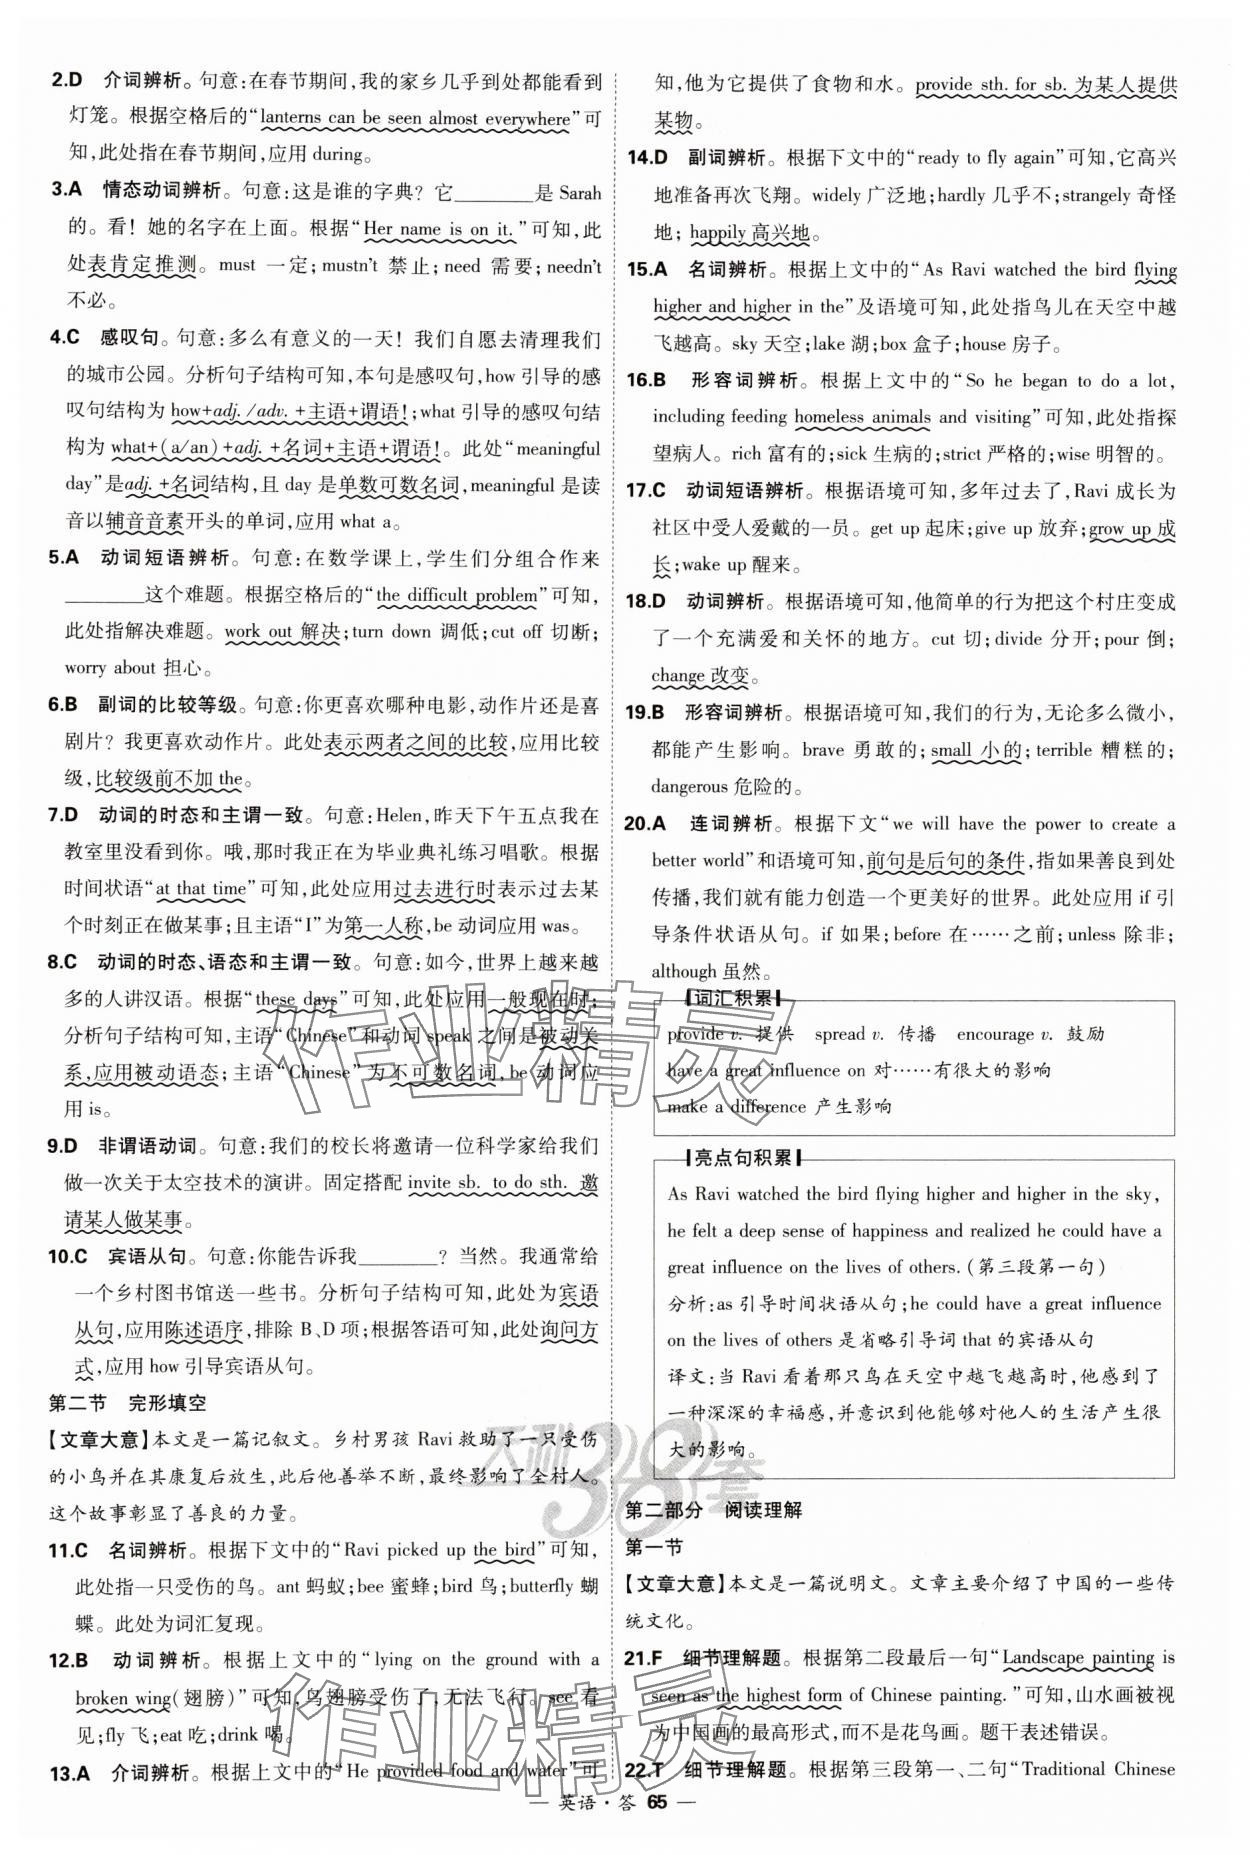 2.D 介词辨析。句意:在春节期间,我的家乡几乎到处都能看到
灯笼。根据空格后的“lanterns can be seen almost everywhere”可
知,此处指在春节期间,应用 during。
3.A 情态动词辨析。句意:这是谁的字典? 它________是 Sarah
的。看! 她的名字在上面。根据“Her name is on it.”可知,此
处表肯定推测。must 一定;mustn't 禁止;need 需要;needn't
不必。
4.C 感叹句。句意:多么有意义的一天! 我们自愿去清理我们
的城市公园。分析句子结构可知,本句是感叹句,how 引导的感
叹句结构为 how+adj. /adv. +主语+谓语!;what 引导的感叹句结
构为 what+(a/an)+adj. +名词+主语+谓语!。此处“meaningful
day”是adj. +名词结构,且 day 是单数可数名词,meaningful 是以
音以辅音音素开头的单词,应用 what a。
5.A 动词短语辨析。句意:在数学课上,学生们分组合作来
________这个难题。根据空格后的“the difficult problem”可知,
此处指解决难题。work out 解决;turn down 调低;cut off 切断;
worry about 担心。
6.B 副词的比较等级。句意:你更喜欢哪种电影,动作片还是喜
剧片? 我更喜欢动作片。此处表示两者之间的比较,应用比较
级,比较级前不加 the。
7.D 动词的时态和主谓一致。句意:Helen,昨天下午五点我在
教室里没看到你。哦,那时我正在为毕业典礼练习唱歌。根据
时间状语“at that time”可知,此处应用过去进行时表示过去某
个时刻正在做某事;且主语“I”为第一人称,be 动词应用 was。
8.C 动词的时态、语态和主谓一致。句意:如今,世界上越来越
多的人讲汉语。根据“these days”可知,此处应用一般现在时;
分析句子结构可知,主语“Chinese”和动词 speak 之间是被动关
系,应用被动语态;主语“Chinese”为不可数名词,be 动词应
用 is。
9.D 非谓语动词。句意:我们的校长将邀请一位科学家给我们
做一次关于太空技术的演讲。固定搭配 invite sb. to do sth. 邀
请某人做某事。
10.C 宾语从句。句意:你能告诉我________? 当然。我通常给
一个乡村图书馆送一些书。分析句子结构可知,此处为宾语
从句,应用陈述语序,排除 B、D 项;根据答语可知,此处询问方
式,应用 how 引导宾语从句。
第二节 完形填空
【文章大意】本文是一篇记叙文。乡村男孩 Ravi 救助了一只受伤
的小鸟并在其康复后放生,此后他善举不断,最终影响了全村人。
这个故事彰显了善良的力量。
11.C 名词辨析。根据下文中的“Ravi picked up the bird”可知,
此处指一只受伤的鸟。ant 蚂蚁;bee 蜜蜂;bird 鸟;butterfly 蝴
蝶。此处为词汇复现。
12.B 动词辨析。根据上文中的“lying on the ground with a
broken wing(翅膀)”可知,鸟翅膀受伤了,无法飞行。see 看
见;fly 飞;eat 吃;drink 喝。
13.A 介词辨析。根据上文中的“He provided food and water”可
知,他为它提供了食物和水。provide sth. for sb. 为某人提供
某物。
14.D 副词辨析。根据下文中的“ready to fly again”可知,它高兴
地准备再次飞翔。widely 广泛地;hardly 几乎不;strangely 奇怪
地; happily 高兴地。
15.A 名词辨析。根据上文中的“As Ravi watched the bird flying
higher and higher in the”及语境可知,此处指鸟儿在天空中越
飞越高。sky 天空;lake 湖;box 盒子;house 房子。
16.B 形容词辨析。根据上文中的“So he began to do a lot,
including feeding homeless animals and visiting”可知,此处指探
望病人。rich 富有的;sick 生病的;strict 严格的;wise 明智的。
17.C 动词短语辨析。根据语境可知,多年过去了,Ravi 成长为
社区中受人爱戴的一员。get up 起床;give up 放弃;grow up 成
长;wake up 醒来。
18.D 动词辨析。根据语境可知,他简单的行为把这个村庄变成
了一个充满爱和关怀的地方。cut 切;divide 分开;pour 倒;
change 改变。
19.B 形容词辨析。根据语境可知,我们的行为,无论多么微小,
都能产生影响。brave 勇敢的;small 小的;terrible 糟糕的;
dangerous 危险的。
20.A 连词辨析。根据下文“we will have the power to create a
better world”和语境可知,前句是后句的条件,指如果善良到处
传播,我们就有能力创造一个更美好的世界。此处应用 if 引
导条件状语从句。if 如果;before 在……之前;unless 除非;
although 虽然。
词汇积累
provide v. 提供 spread v. 传播 encourage v. 鼓励
have a great influence on 对……有很大的影响
make a difference 产生影响
亮点句积累
As Ravi watched the bird flying higher and higher in the sky,
he felt a deep sense of happiness and realized he could have a
great influence on the lives of others. (第三段第一句)
分析:as 引导时间状语从句;he could have a great influence
on the lives of others 是省略引导词 that 的宾语从句
译文:当 Ravi 看着那只鸟在天空中越飞越高时,他感到了
一种深深的幸福感,并意识到他能够对他人的生活产生很
大的影响。
第二部分 阅读理解
第一节
【文章大意】本文是一篇说明文。文章主要介绍了中国的一些传
统文化。
21.F 细节理解题。根据第二段最后一句“Landscape painting is
seen as the highest form of Chinese painting.”可知,山水画被视
为中国画的最高形式,而不是花鸟画。题干表述错误。
22.T 细节理解题。根据第三段第一、二句“Traditional Chinese
— 英语·答 65 —
作业精灵
天利38套
作业精灵